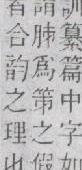 訓纂篇中字如
謂腖爲第之假
者合韵之理也